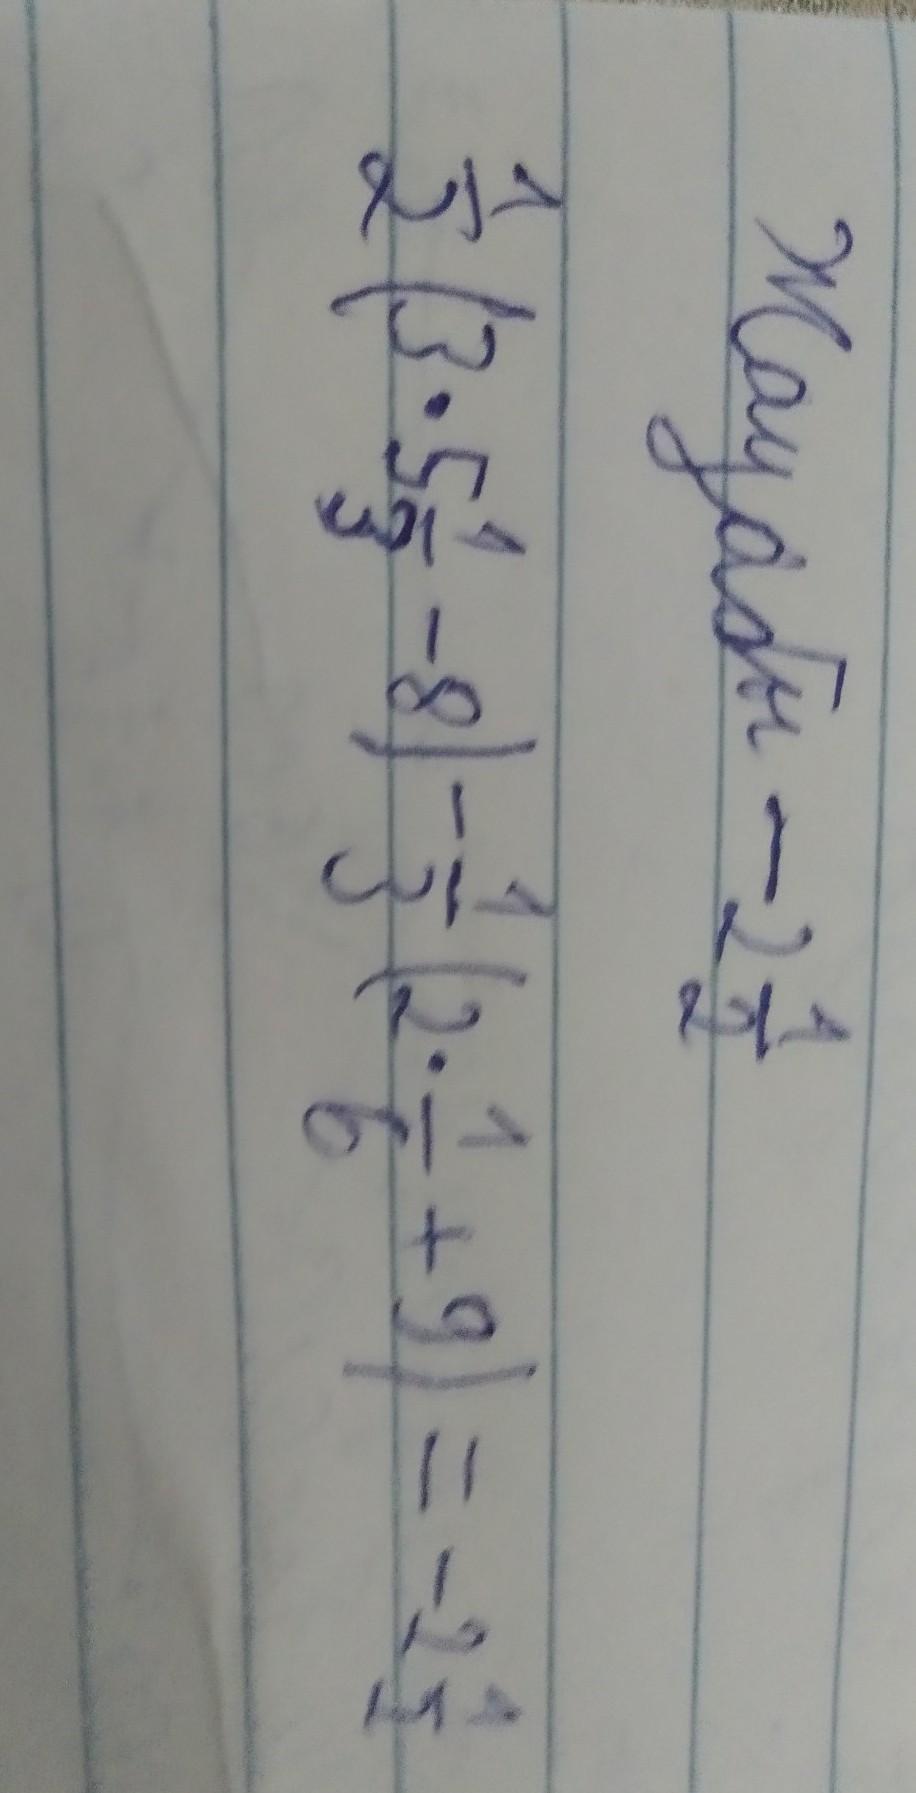 Жауабы - 2 1/2
1/2 (3 · 5 1/3 - 8) - 1/3 (2 · 1/6 + 9) = - 2 1/2